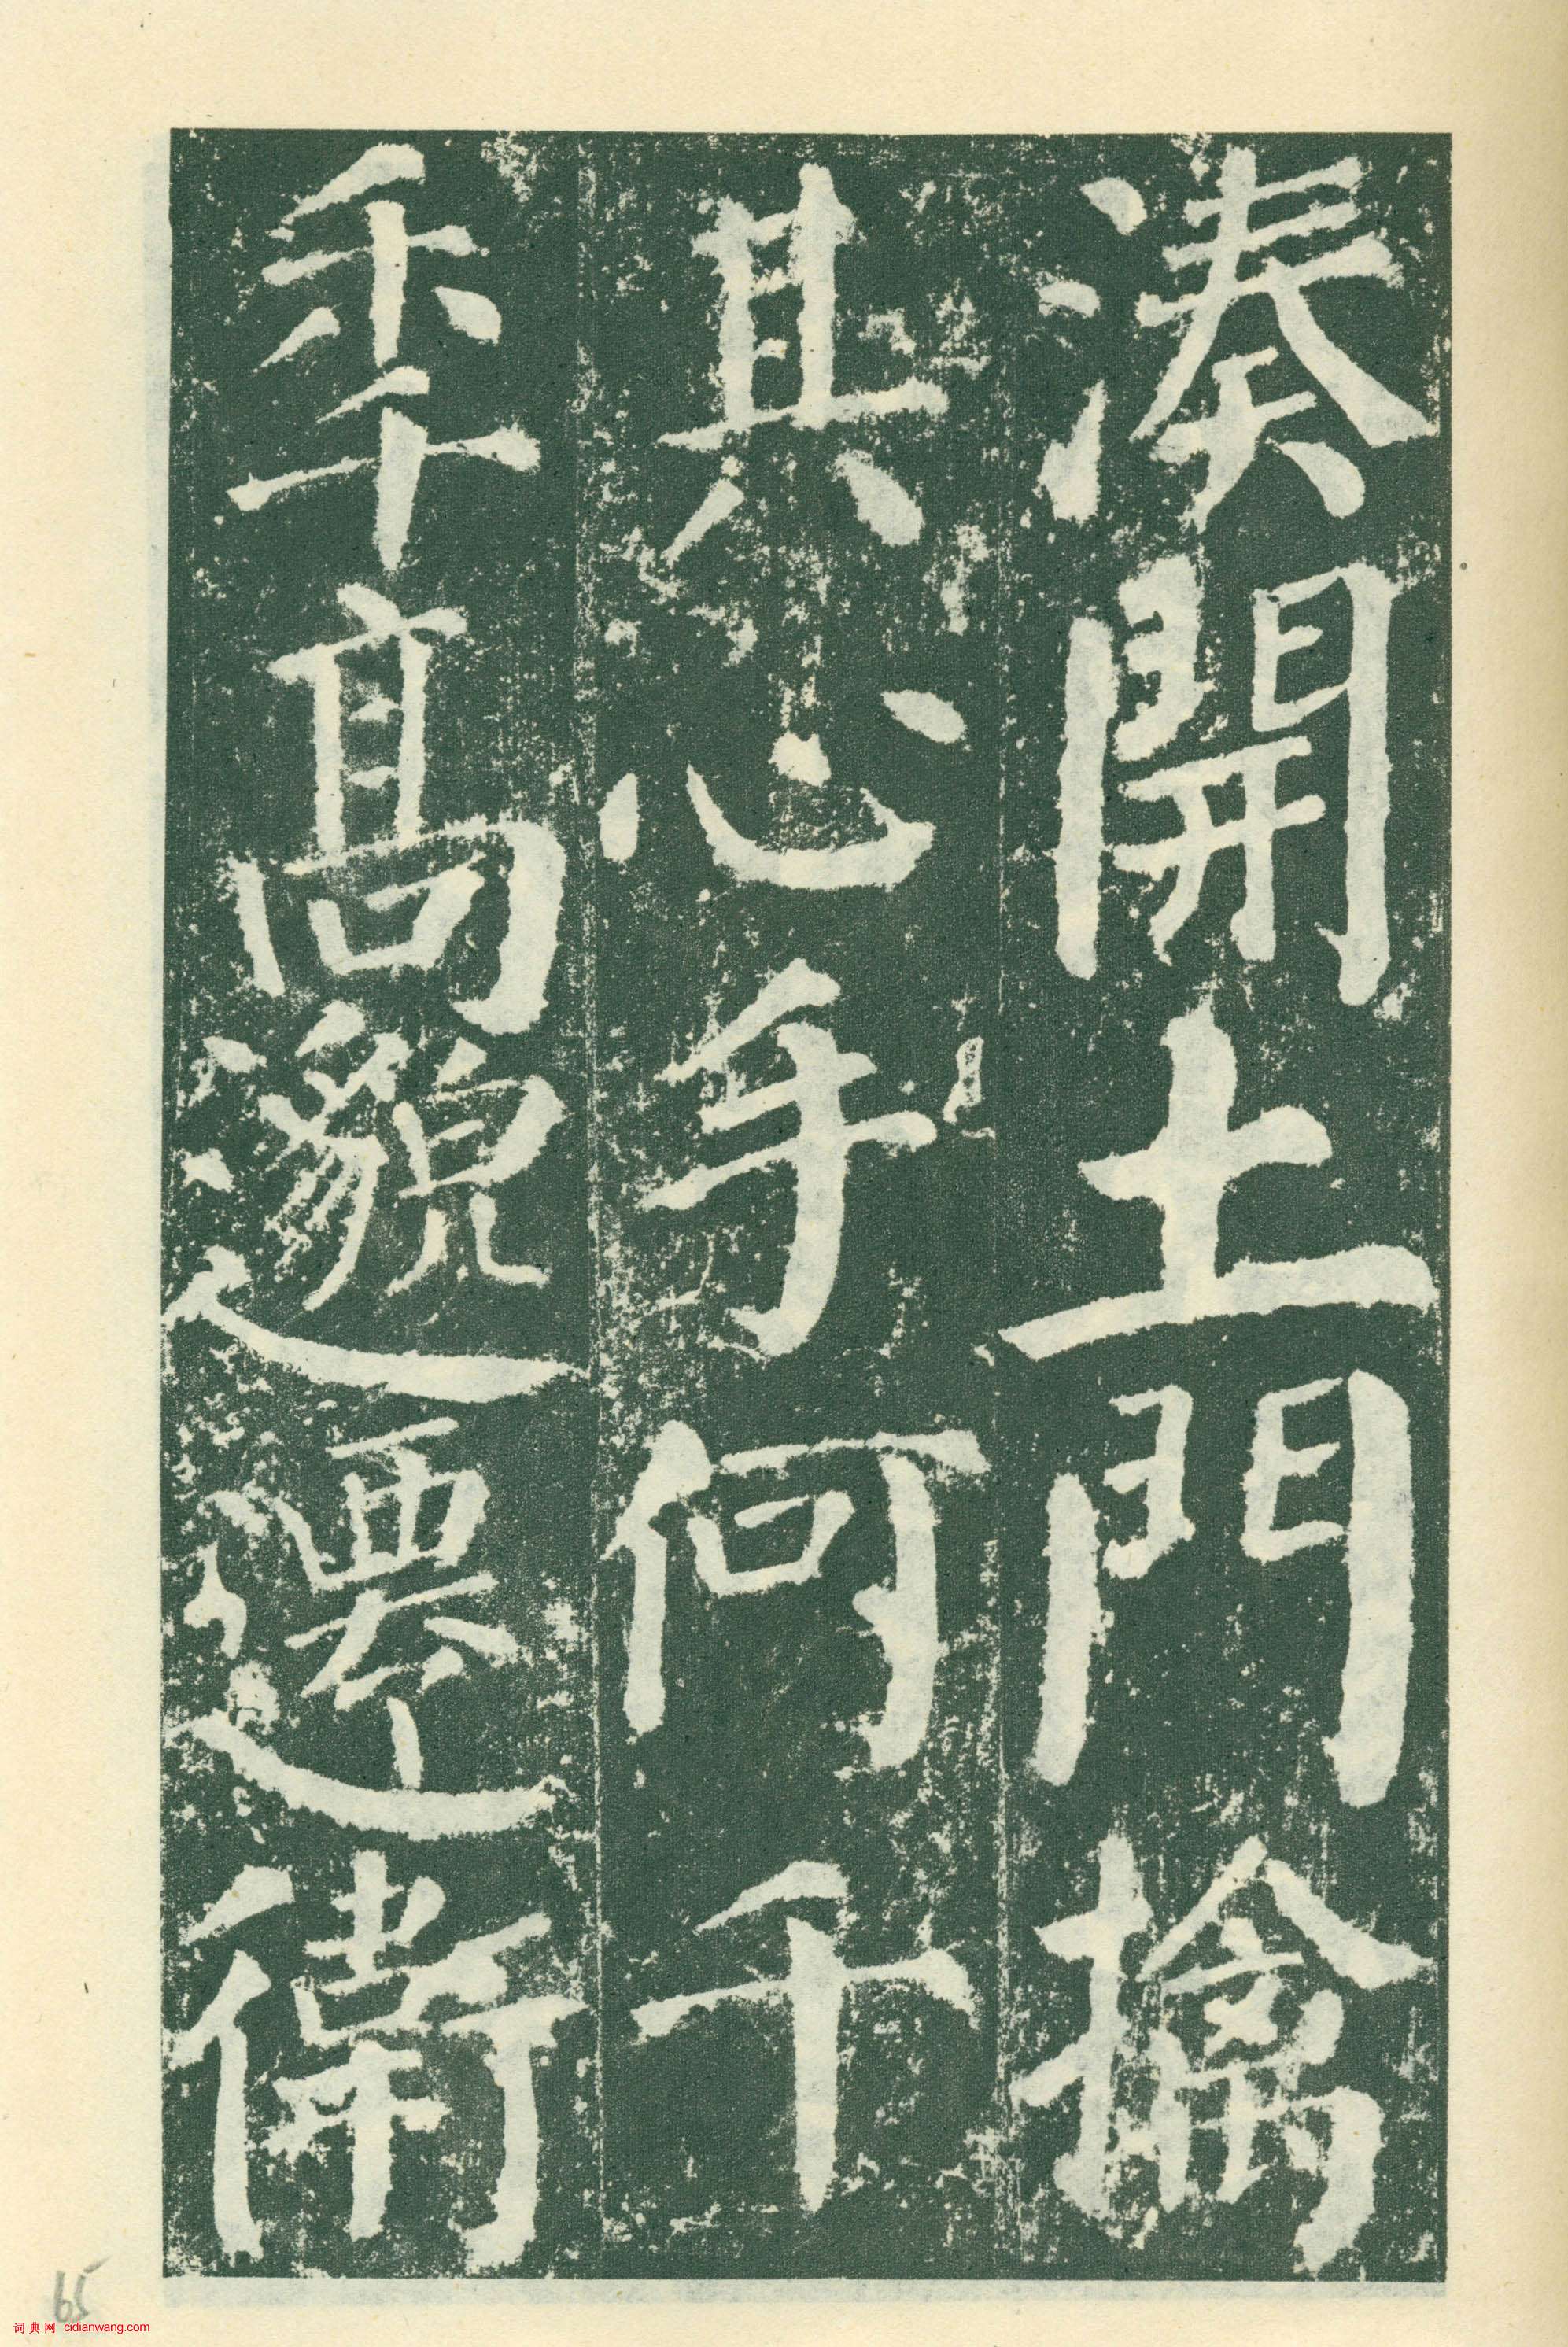 湊開土門擒
其心手何千
秊髙邈遷衛
65
词典网 cidianwang.com